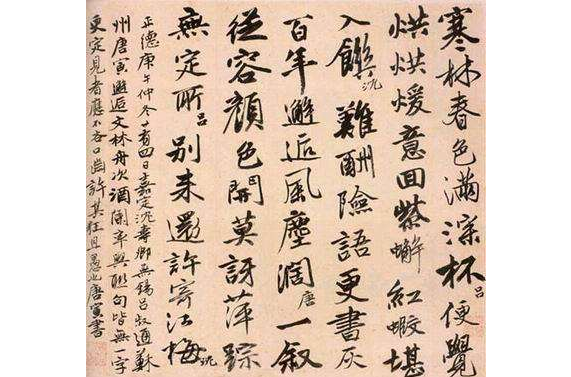 寒林春色滿深杯呂便覺
烘烘煖意回紫蠏紅蝦堪
入饌沈難酬險語更書灰
百年邂逅風塵闊唐一叙
從容顏色開莫訝萍蹤
無定所呂別來還許寄江梅沈
正德庚午仲冬廿有四日嘉定沈壽卿無錫呂叔通蘇
州唐寅邂逅文林舟次酒闌率興聯句皆無一字
更定見者應不吝口齒許其狂且愚也唐寅書